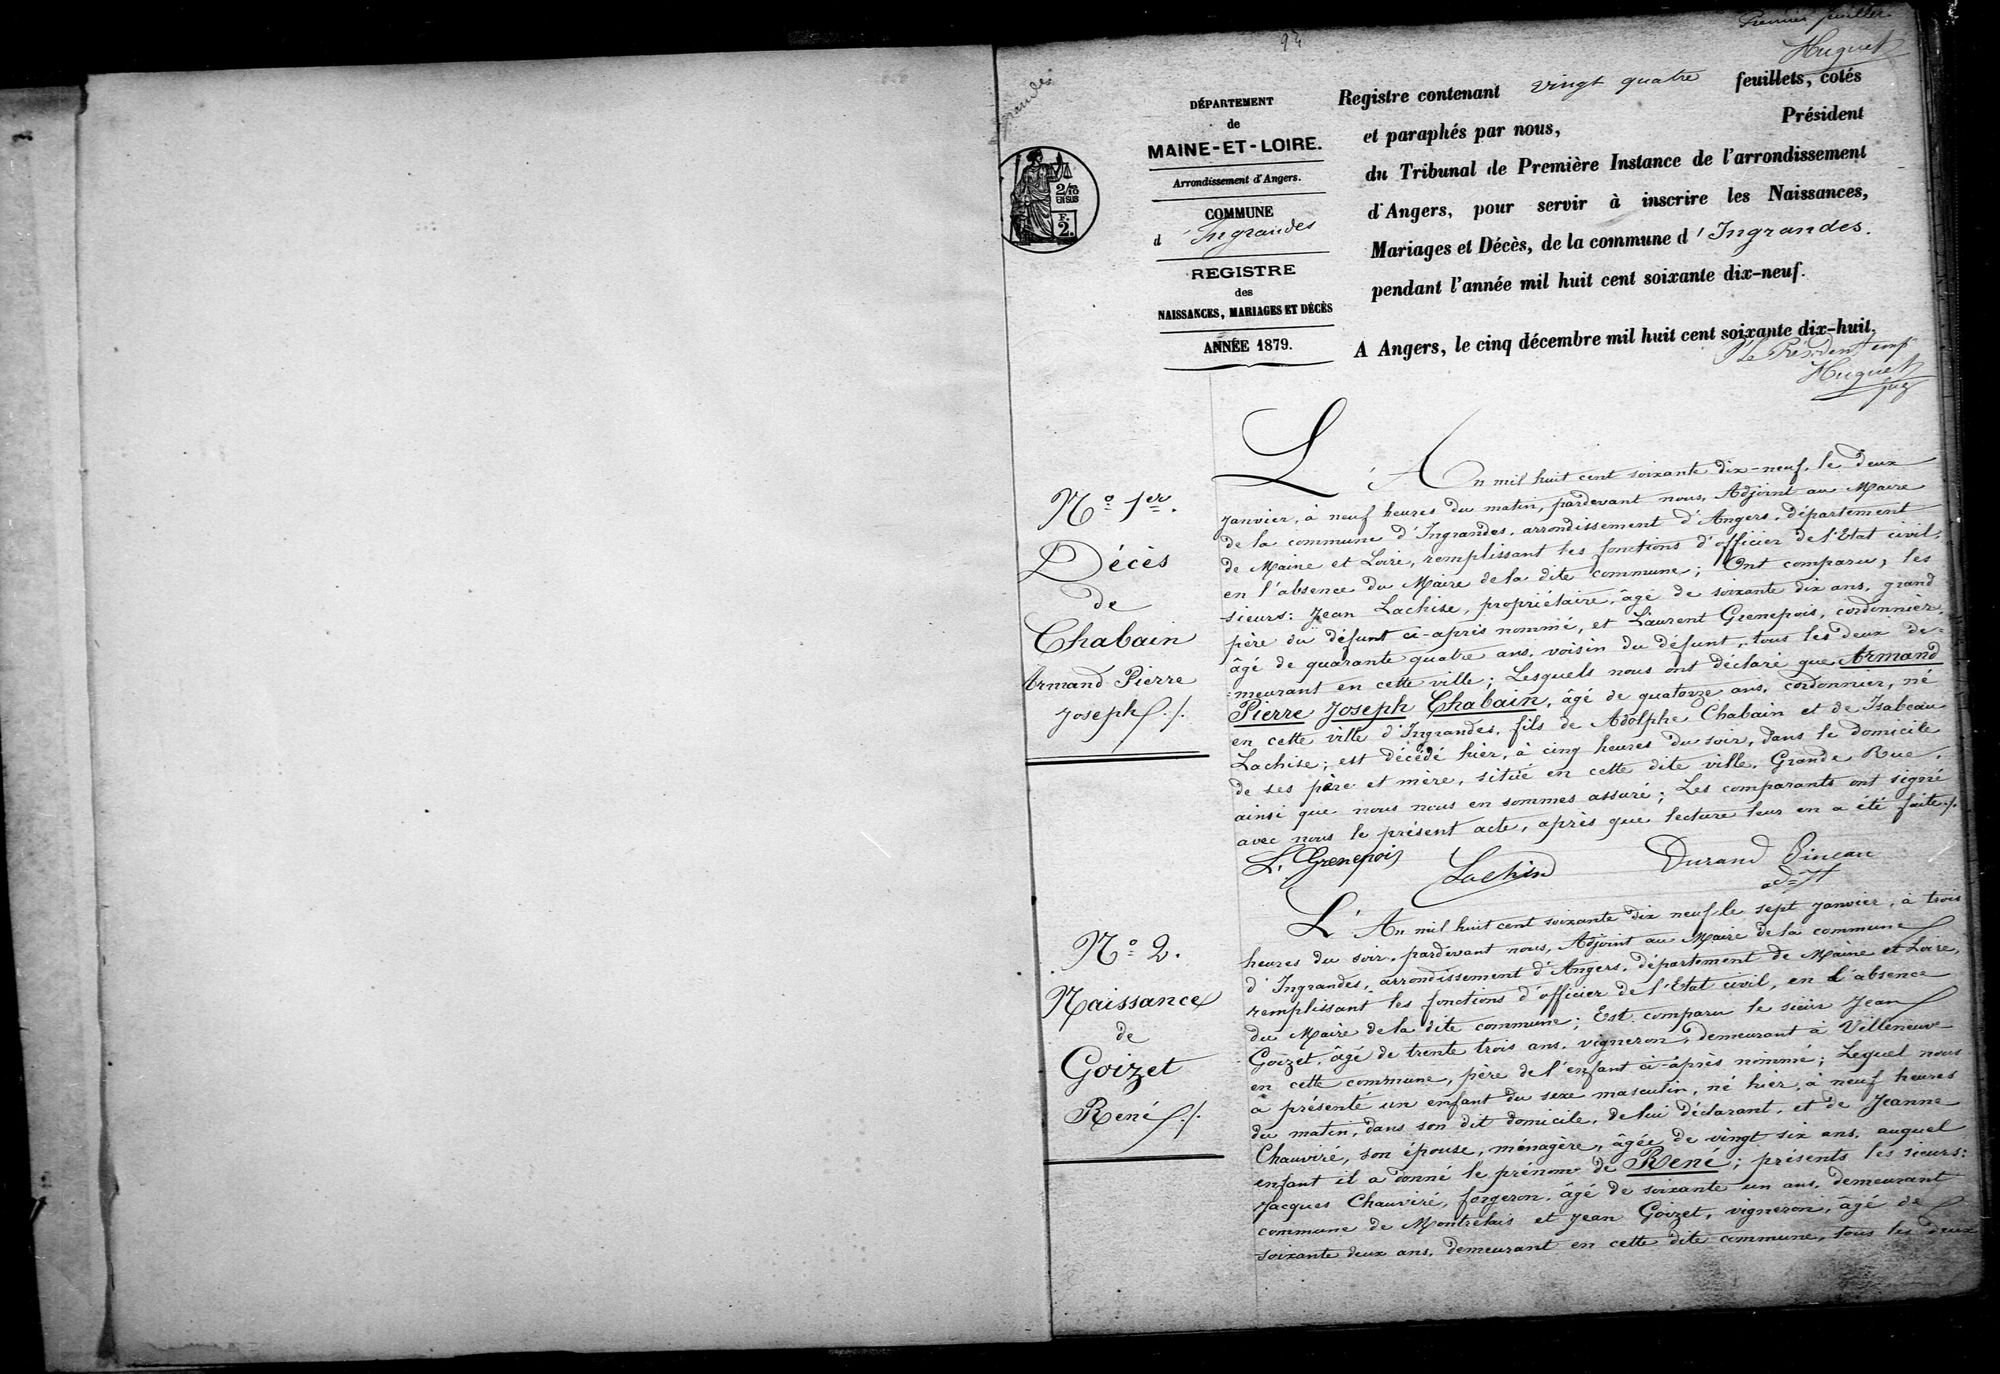 Premier feuillet.
Huguet
94
DÉPARTEMENT
de
MAINE-ET-LOIRE.
Arrondissement d'Angers.
COMMUNE
d'Ingrandes
REGISTRE
des
NAISSANCES, MARIAGES ET DÉCÈS
ANNÉE 1879.
2/10
EN SUS
F.
2.
Registre contenant vingt quatre feuillets, cotés
et paraphés par nous, Président
du Tribunal de Première Instance de l'arrondissement
d'Angers, pour servir à inscrire les Naissances,
Mariages et Décès, de la commune d'Ingrandes.
pendant l'année mil huit cent soixante dix-neuf.
A Angers, le cinq décembre mil huit cent soixante dix-huit,
Le Président emp
Huguet
juge
No 1er.
Décès
de
Chabain
Armand Pierre
Joseph ./.
L'An mil huit cent soixante dix-neuf, le deux
Janvier, à neuf heures du matin, pardevant nous, Adjoint au Maire
de la commune d'Ingrandes, arrondissement d'Angers, département
de Maine et Loire, remplissant les fonctions d'officier de l'Etat civil,
en l'absence du Maire de la dite commune; Ont comparu, les
sieurs: Jean Lachise, propriétaire, âgé de soixante dix ans, grand
père du défunt ci-après nommé, et Laurent Grenepois, cordonnier,
âgé de quarante quatre ans, voisin du défunt, tous les deux de-
meurant en cette ville; Lesquels nous ont déclaré que Armand
Pierre Joseph Chabain, âgé de quatorze ans, cordonnier, né
en cette ville d'Ingrandes, fils de Adolphe Chabain et de Isabeau
Lachise; est décédé hier, à cinq heures du soir, dans le domicile
de ses père et mère, situé en cette dite ville, Grande Rue,
ainsi que nous nous en sommes assuré; Les comparants ont signé
avec nous le présent acte, après que lecture leur en a été faite./.
L. Grenepois Lachise Durand Pineau
adjt
No 2.
Naissance
de
Goizet
René ./.
L'An mil huit cent soixante dix neuf le sept Janvier, à trois
heures du soir, pardevant nous, Adjoint au Maire de la commune
d'Ingrandes, arrondissement d'Angers, département de Maine et Loire,
remplissant les fonctions d'officier de l'Etat civil, en l'absence
du Maire de la dite commune; Est comparu le sieur Jean
Goizet, âgé de trente trois ans, vigneron, demeurant à Villeneuve
en cette commune, père de l'enfant ci-après nommé; Lequel nous
a présenté un enfant du sexe masculin, né hier, à neuf heures
du matin, dans son dit domicile, de lui déclarant, et de Jeanne
Chauviré, son épouse, ménagère, âgée de vingt six ans, auquel
enfant il a donné le prénom de René; présents les sieurs:
Jacques Chauviré, forgeron, âgé de soixante un ans, demeurant
commune de Montrelais et Jean Goizet, vigneron, âgé de
soixante deux ans, demeurant en cette dite commune, tous les deux